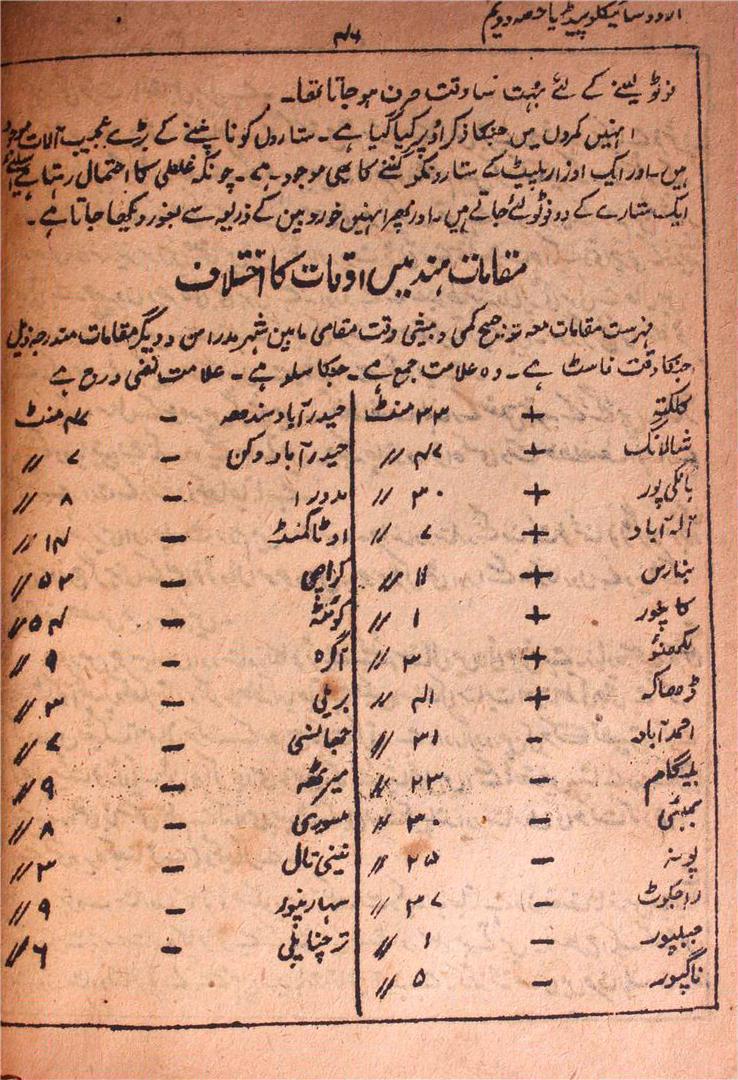 الاردو سائیکلوپیڈیا حصہ دویم
۴۶
فوٹو لینے کے لئے بہت سا وقت صرف ہو جاتا تھا۔
انہیں کمروں میں جنکا ذکر اوپر کیا گیا ہے۔ ستاروں کو ناپنے کے بڑے عجیب آلات موجود
ہیں۔ اور ایک اوزار پلیٹ کے ستارونکو گننے کا بھی موجود ہے۔ چونکہ غلطی کا احتمال رہتا ہے اسلئے
ایک ستارے کے دو فوٹو لئے جاتے ہیں۔ اور پھر انہیں خوردبین کے ذریعہ سے بغور دیکھا جاتا ہے۔
مقامات ہند میں اوقات کا اختلاف
فہرست مقامات معہ توضیح کمی و بیشی وقت مقامی مابین شہر مدراس و دیگر مقامات مندرجہ ذیل
جنکا وقت فاسٹ ہے۔ وہ علامت جمع ہے۔ جنکا سلو ہے۔ علامت نفی درج ہے
کلکتہ + ۳۳ منٹ
شالانگ + ۴۷ //
بانکی پور + ۳۰ //
الہ آباد + ۷ //
بنارس + ۱۱ //
کانپور + ۱ //
لکھنؤ + ۳ //
ڈھاکہ + ۴۱ //
احمدآباد - ۳۱ //
بلیگام - ۲۳ //
بمبئی - ۳۰ //
پونہ - ۲۵ //
راجکوٹ - ۳۷ //
جبلپور - ۱ //
ناگپور - ۵ //
حیدرآباد سندھ - ۴۷ منٹ
حیدرآباد دکن - ۷ //
مدورا - ۸ //
اوٹاکمنڈ - ۱۴ //
کراچی - ۵۳ //
کوئٹہ - ۵۴ //
آگرہ - ۹ //
بریلی - ۳ //
جھانسی - ۷ //
میرٹھ - ۹ //
مسوری - ۸ //
نینی تال - ۳ //
سہارنپور - ۹ //
ترچناپلی - ۶ //